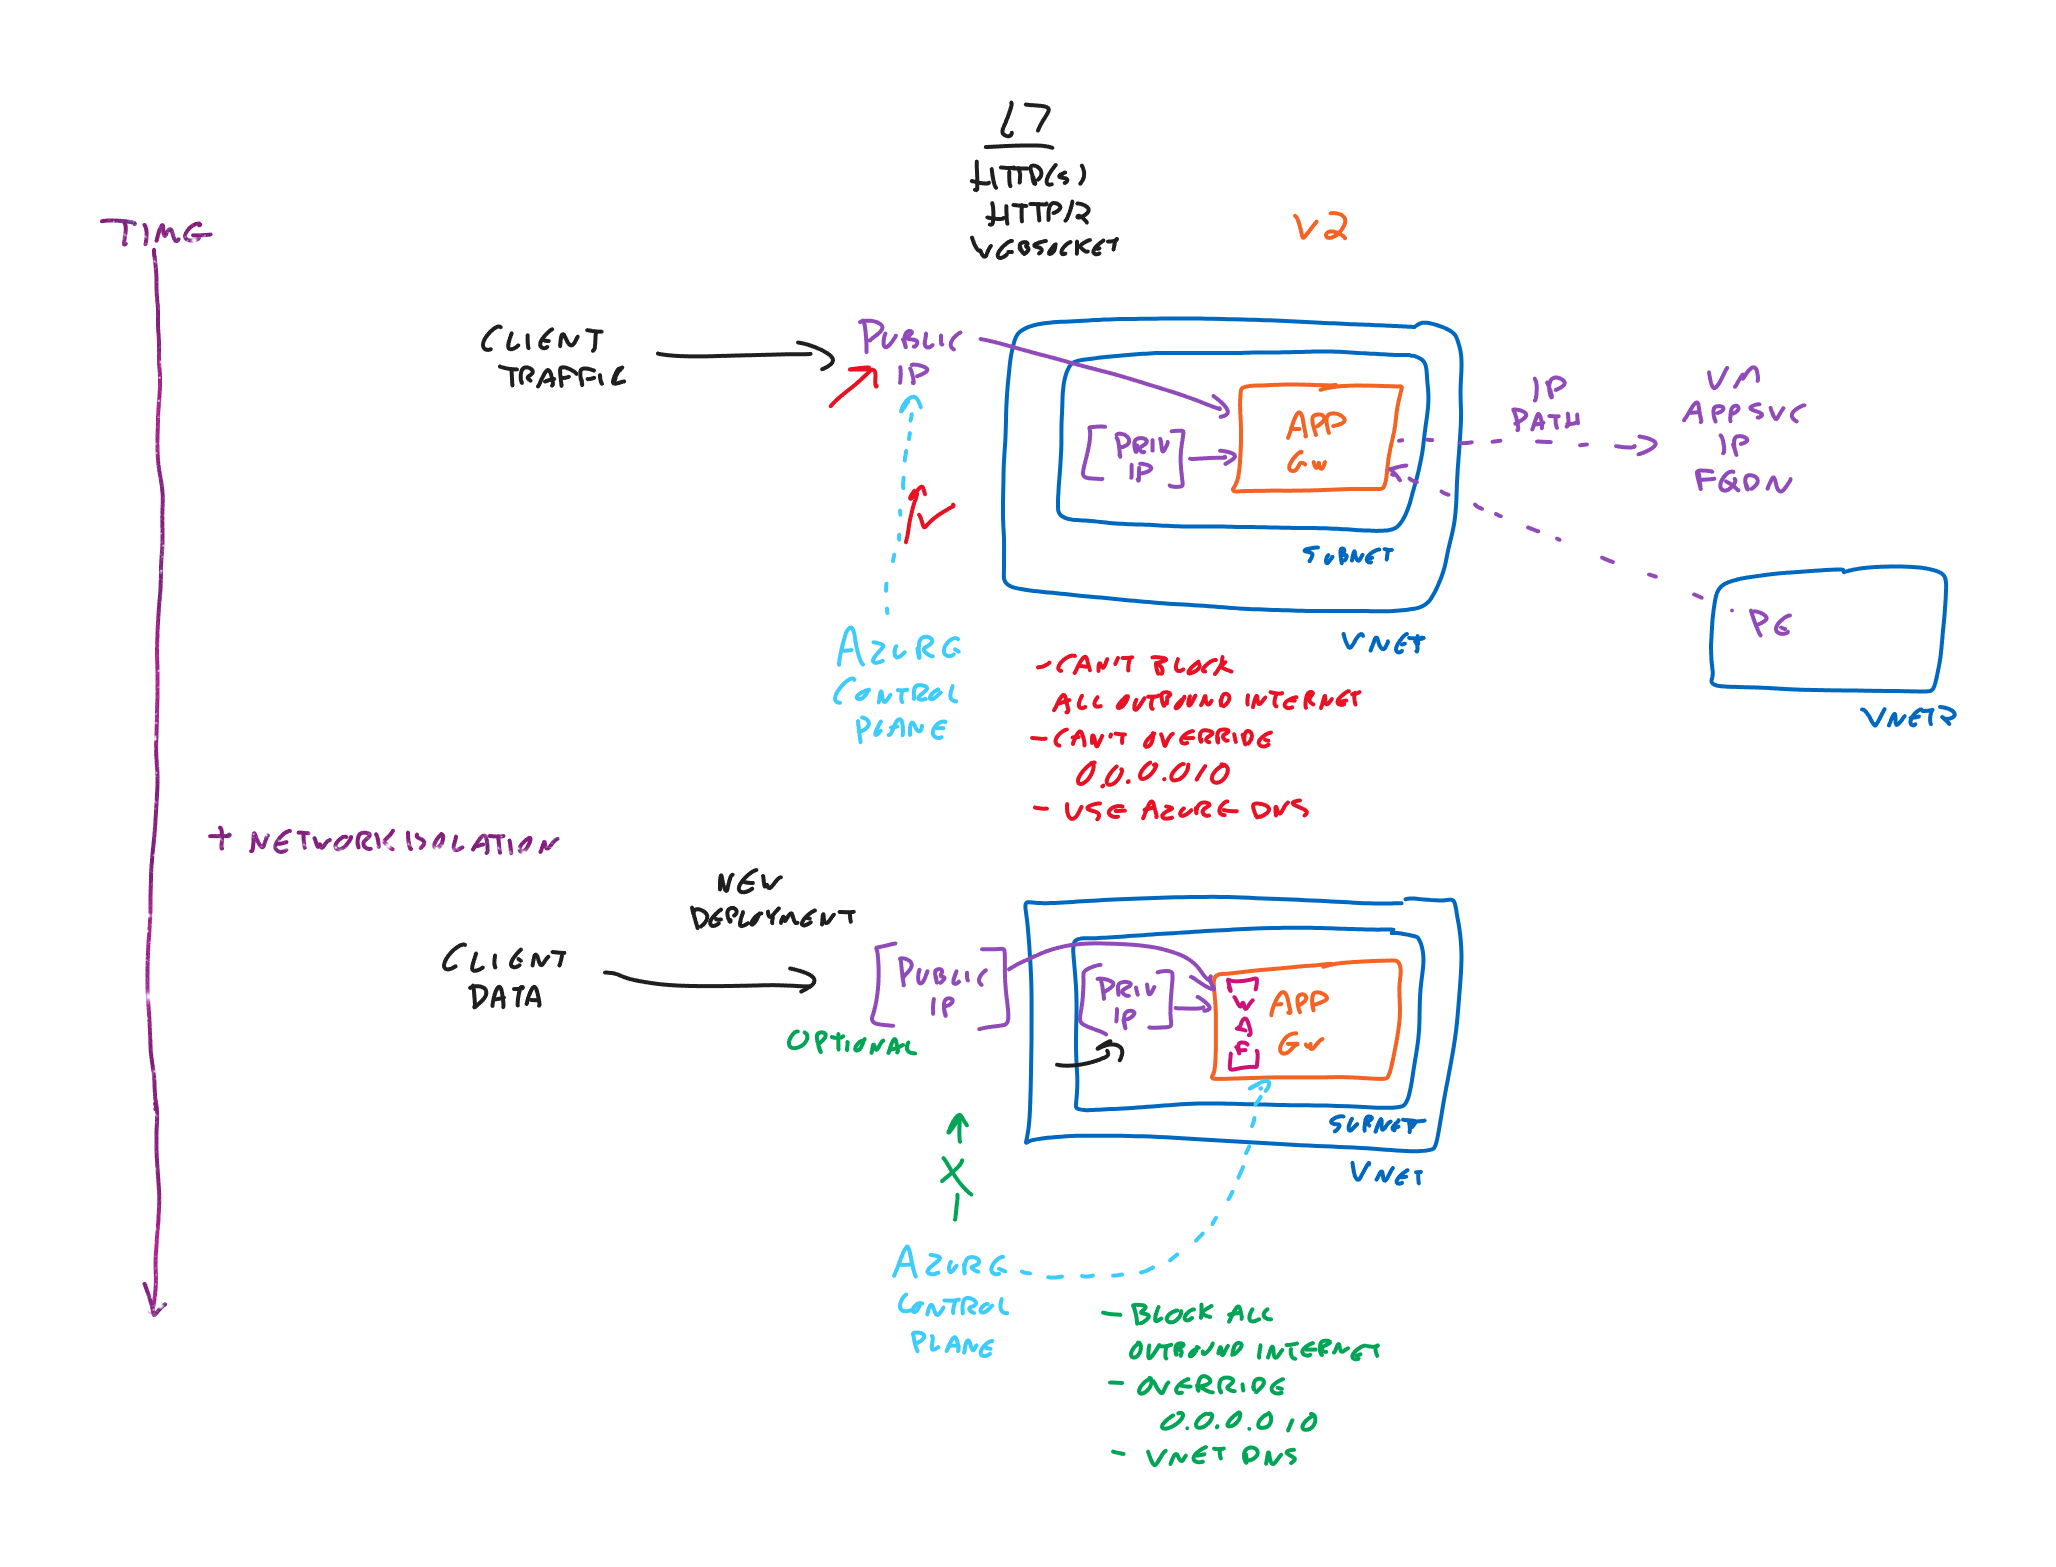 L7
HTTP(s)
HTTP/2
WEBSOCKET
V2
TIME
CLIENT
TRAFFIC
PUBLIC
IP
[PRIV
IP]
APP
GW
SUBNET
VNET
IP
PATH
VM
APPSVC
IP
FQDN
PE
VNET2
AZURE
CONTROL
PLANE
- CAN'T BLOCK
ALL OUTBOUND INTERNET
- CAN'T OVERRIDE
0.0.0.0/0
- USE AZURE DNS
+ NETWORK ISOLATION
NEW
DEPLOYMENT
CLIENT
DATA
[PUBLIC
IP]
OPTIONAL
[PRIV
IP]
[WAF]
APP
GW
SUBNET
VNET
X
AZURE
CONTROL
PLANE
- BLOCK ALL
OUTBOUND INTERNET
- OVERRIDE
0.0.0.0/0
- VNET DNS